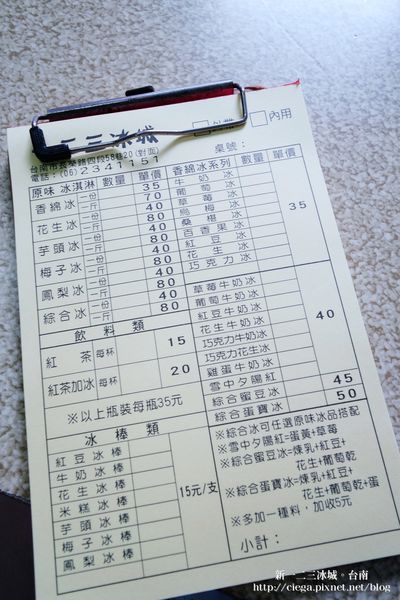 二三冰城
內用
台南市長榮路四段58巷20(對面)
電話:(06)2341151
桌號:
原味 冰淇淋 數量 單價
香綿冰 一份 35
一斤 70
花生冰 一份 40
一斤 80
芋頭冰 一份 40
一斤 80
梅子冰 一份 40
一斤 80
鳳梨冰 一份 40
一斤 80
綜合冰 一份 40
一斤 80
飲料類
紅茶 每杯 15
紅茶加冰 每杯 20
※以上瓶裝每瓶35元
冰棒類
紅豆冰棒
牛奶冰棒
花生冰棒
米糕冰棒
芋頭冰棒
梅子冰棒
鳳梨冰棒
15元/支
香綿冰系列 數量 單價
牛奶冰
葡萄冰
草莓冰
烏梅冰
桑椹冰
百香果冰
紅豆冰
花生冰
巧克力冰
35
草莓牛奶冰
葡萄牛奶冰
紅豆牛奶冰
花生牛奶冰
巧克力牛奶冰
巧克力花生冰
雞蛋牛奶冰
雪中夕陽紅
40
綜合蜜豆冰 45
綜合蛋寶冰 50
※綜合冰可任選原味冰品搭配
※雪中夕陽紅=蛋黃+草莓
※綜合蜜豆冰=煉乳+紅豆+
花生+葡萄乾
※綜合蛋寶冰=煉乳+紅豆+
花生+葡萄乾+蛋
※多加一種料,加收5元
小計:
新一二三冰城。台南
http://ciega.pixnet.net/blog